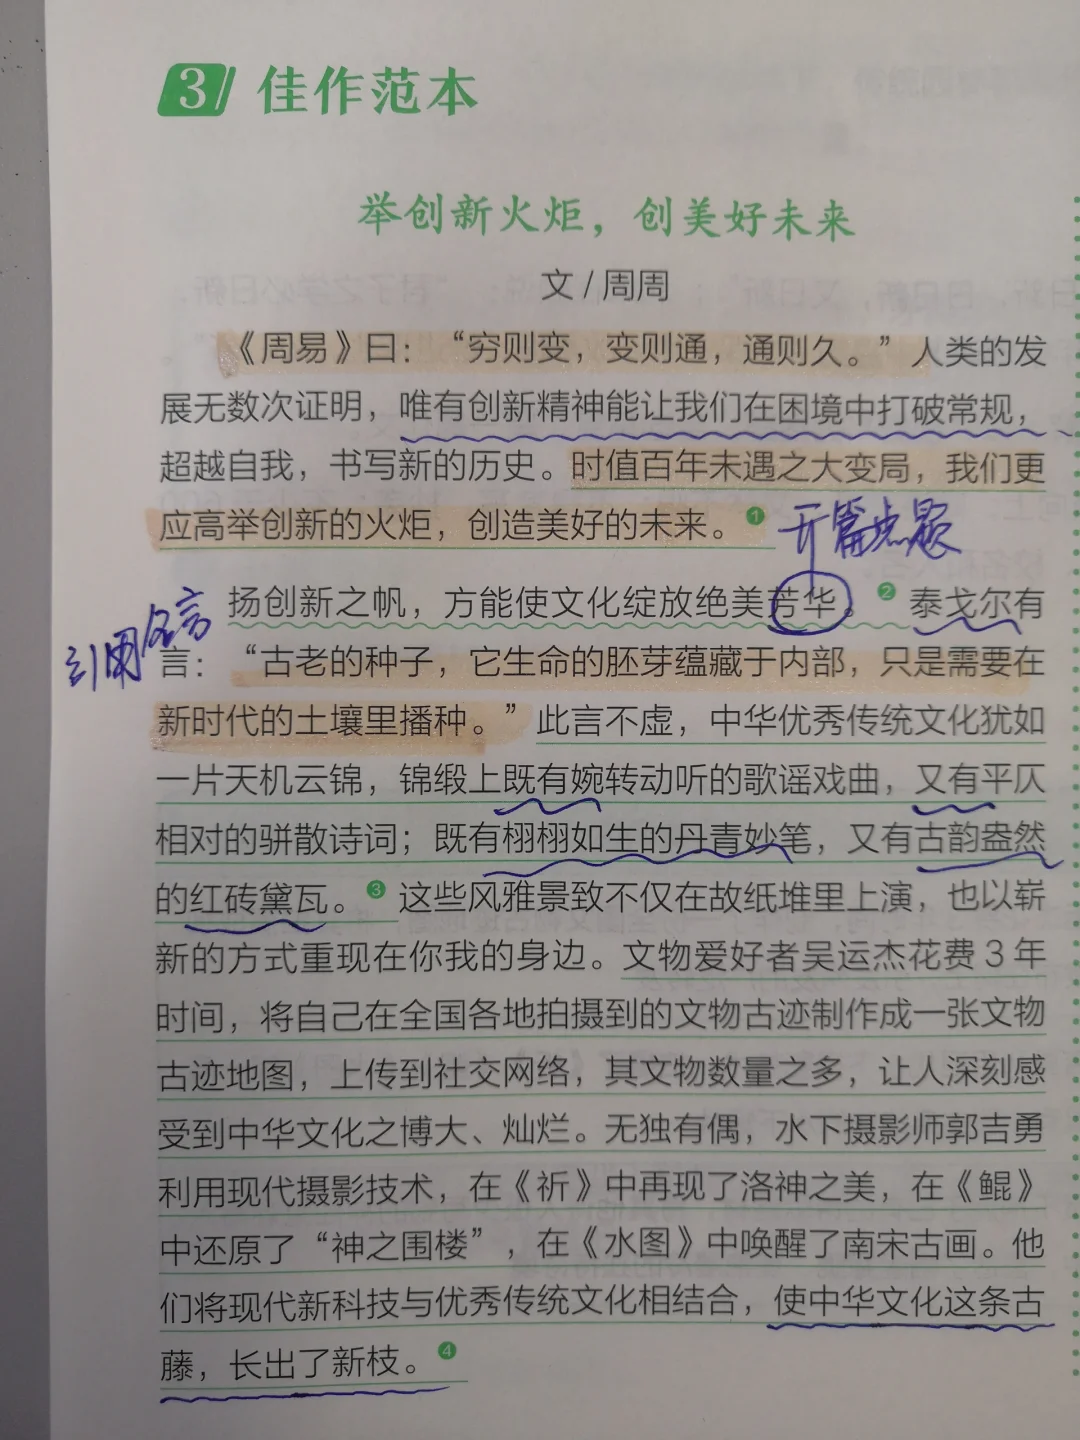 3 佳作范本
举创新火炬，创美好未来
文 / 周周
《周易》曰：“穷则变，变则通，通则久。”人类的发
展无数次证明，唯有创新精神能让我们在困境中打破常规，
超越自我，书写新的历史。时值百年未遇之大变局，我们更
应高举创新的火炬，创造美好的未来。1
开篇点题
扬创新之帆，方能使文化绽放绝美芳华。2 泰戈尔有
引用名言
言：“古老的种子，它生命的胚芽蕴藏于内部，只是需要在
新时代的土壤里播种。”此言不虚，中华优秀传统文化犹如
一片天机云锦，锦缎上既有婉转动听的歌谣戏曲，又有平仄
相对的骈散诗词；既有栩栩如生的丹青妙笔，又有古韵盎然
的红砖黛瓦。3 这些风雅景致不仅在故纸堆里上演，也以崭
新的方式重现在你我的身边。文物爱好者吴运杰花费 3 年
时间，将自己在全国各地拍摄到的文物古迹制作成一张文物
古迹地图，上传到社交网络，其文物数量之多，让人深刻感
受到中华文化之博大、灿烂。无独有偶，水下摄影师郭吉勇
利用现代摄影技术，在《祈》中再现了洛神之美，在《鲲》
中还原了“神之围楼”，在《水图》中唤醒了南宋古画。他
们将现代新科技与优秀传统文化相结合，使中华文化这条古
藤，长出了新枝。4